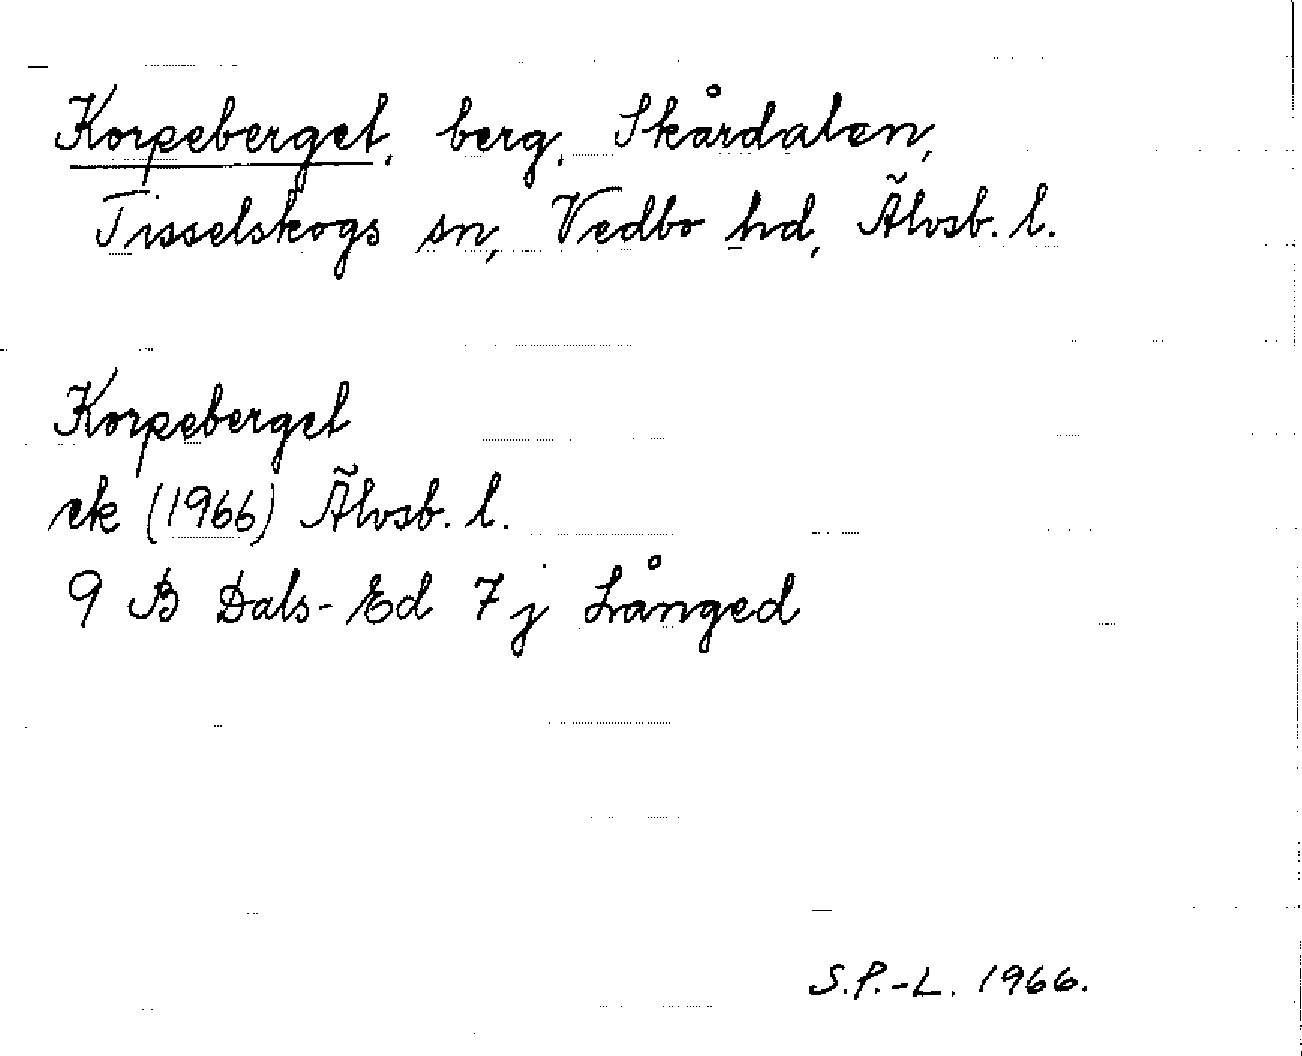 Korpeberget, berg, Skårdalen,
Tisselskogs sn, Vedbo hd, Älvsb. l.
Korpeberget
ek (1966) Älvsb. l.
9 B Dals-Ed 7 j Långed
S.P.-L. 1966.